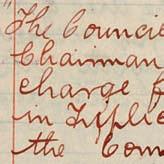 "The Counci
Chairman
charge f
in
the Com